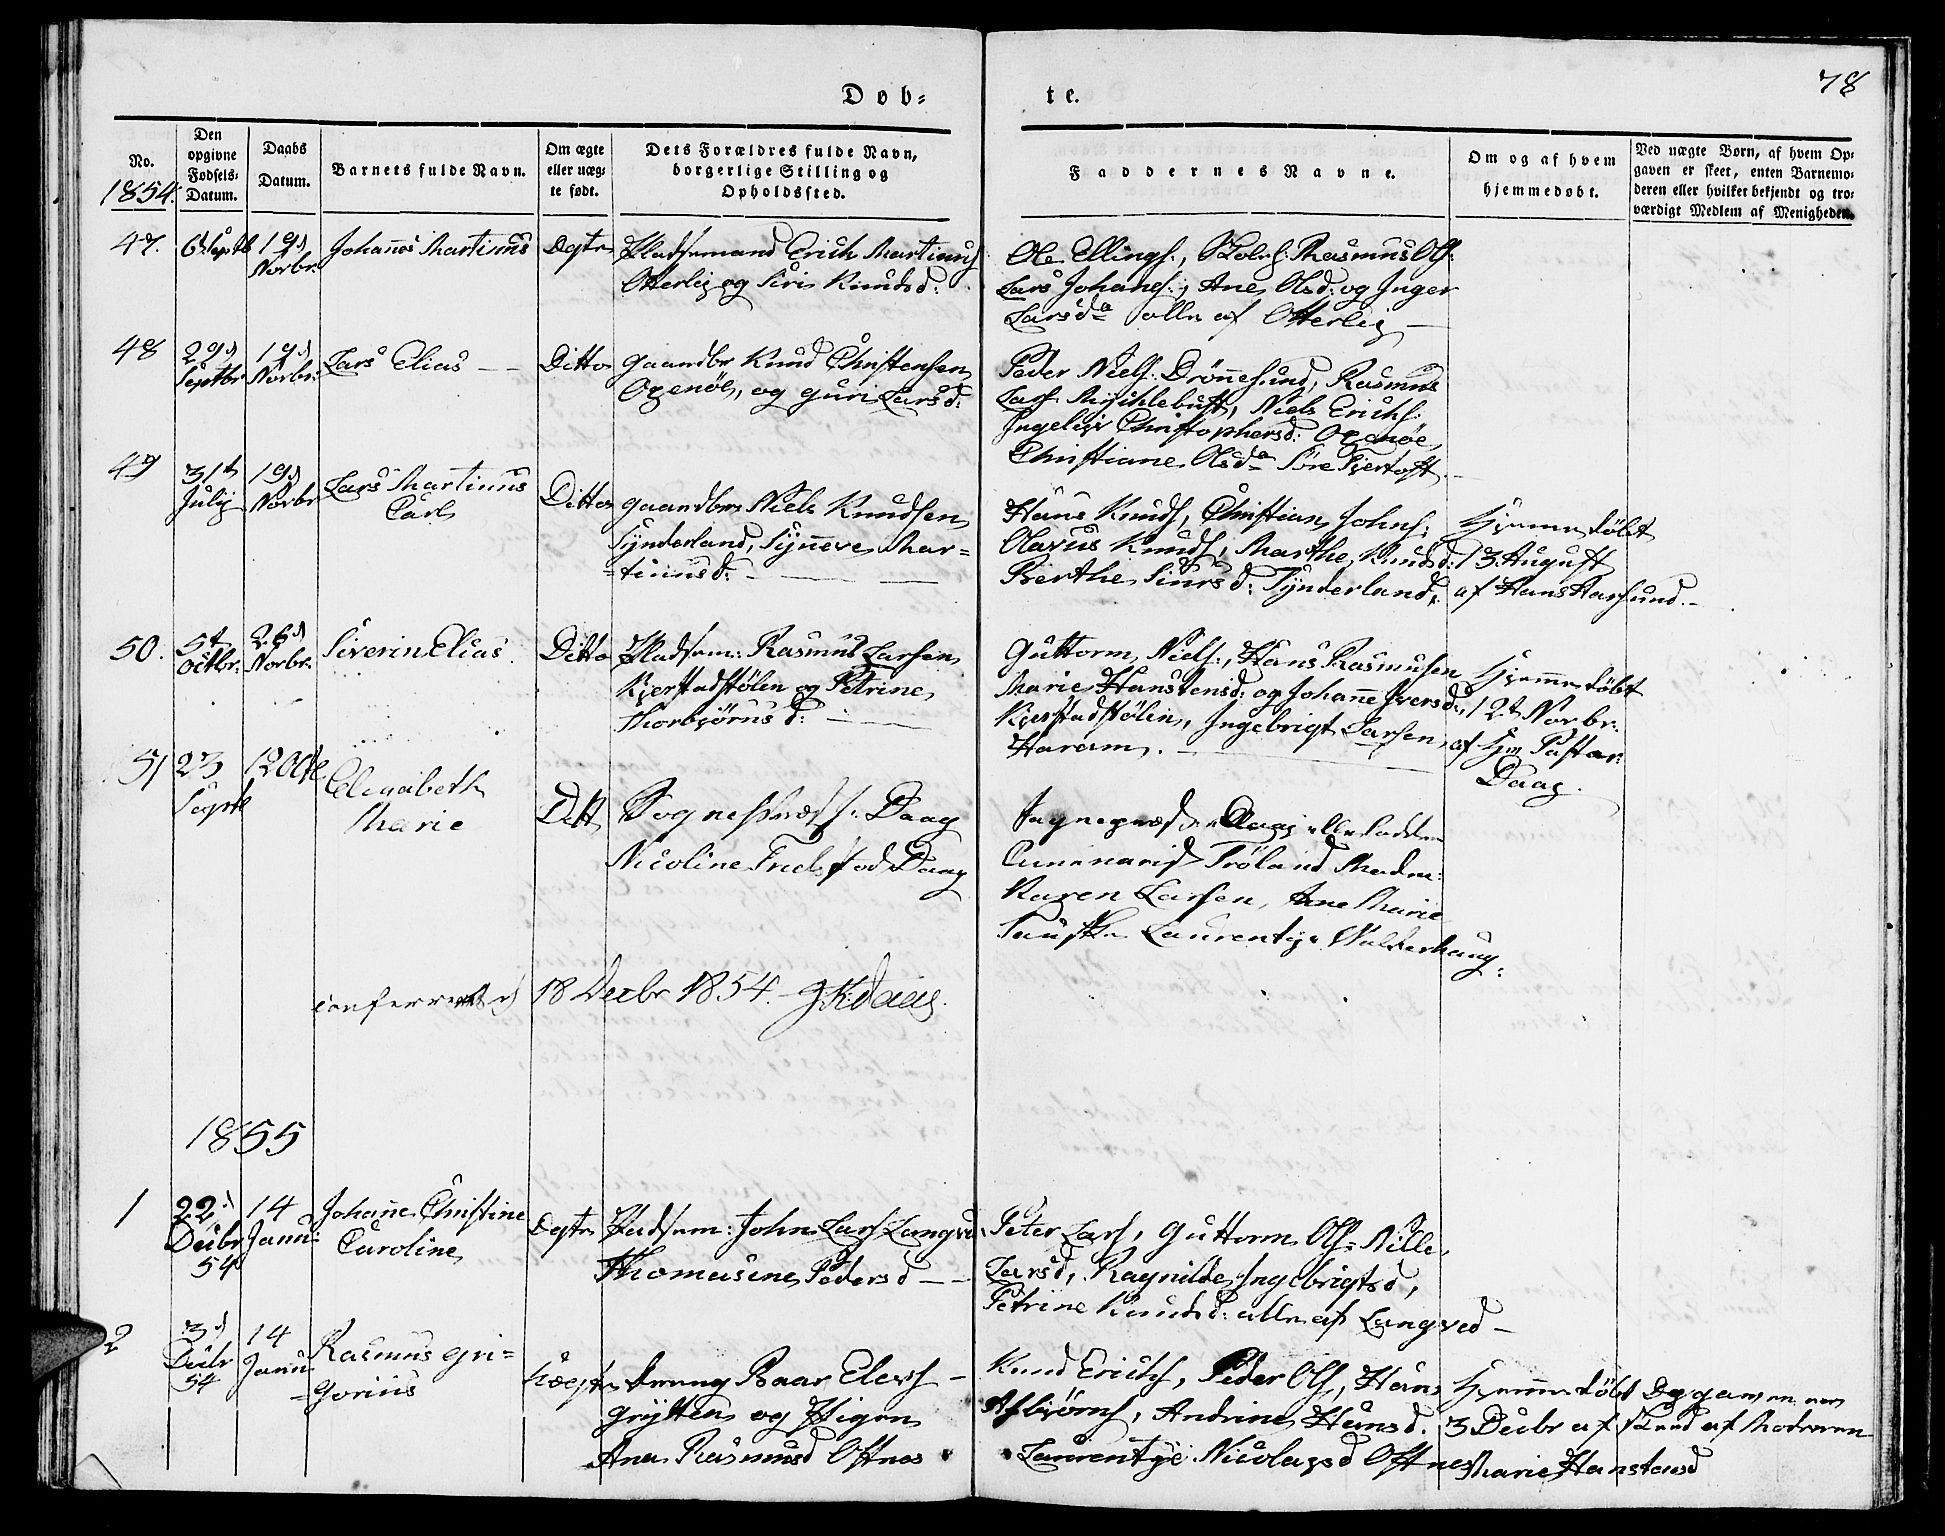 78
Døb-
te.
No.
1854.
Den
opgivne
Fødsels-
Datum.
Daabs
Datum.
Barnets fulde Navn.
Om ægte
eller uæg-
te født.
Dets Forældres fulde Navn,
borgerlige Stilling og
Opholdssted.
Faddernes Navne.
Om og af hvem
hjemmedøbt.
Ved uægte Børn, af hvem Op-
gaven er skeet, enten Barnemo-
deren eller hvilket bekjendt og tro-
værdigt Medlem af Menigheden.
47.
19d
Novbr.
Johannes Martinus
Pladsmand Erich Martinus
Otterlei og Siri Knudsd:
Ole Ellings., Rasmus Ols.
Lars Johans., Ane Olsd: og Inger
Larsda alle af Otterlei
48
29d
Septbr
19d
Novbr.
Lars Elias
Ditto
Gaardbr Knud Christensen
Oxenöe, og Guri Larsd:
Peder Niels. Drönnesund, Rasmus
Lars. Myhlebust, Niels Erichs.
Christophersd: Oxenöe
Christiane Olsda Søre Fjertoft
49
31t
July
19d
Novbr
Lars Martinus
Carl
Ditto
Gaardbr Niels Knudsen
Synderland, Synneve Mar=
=tinusd:
Hans Knuds, Christian Johns:
Olavus Knuds, Marthe Knudsd:
Berthe Siursd: Synderland.
Hjemmedöbt
13 August
af Hans Harsund.
50.
5t
Octbr.
26d
Novbr.
Siverin Elias
Ditto
Pladsm: Rasmus Larsen
Kjerstadstölen og Petrine
Thorbjörnsd:
Guttorm Niels., Hans Rasmusen
Marie Hanstensd: og Johanne Iversd:
Kjerstadstölen, Ingebrigt Larsen
Haram.
Hjemmedöbt
12t Novbr.
af Hr Pastor
Daae.
51
23
Septe
12 Octe
Elisabeth
Marie
Ditt
Sognepræst: Daae
Nicoline Daae
Sognepræst Daae
Karen Larsen, Ane Marie
Laurentze Walderhaug.
18 Decbr 1854. Daae.
1855
1
22d
Decbr
54
14
Janu:
Johanne Christine
Caroline
Pladsm: John Lars Langved
Thomasine Pedersd
Peter Lars, Guttorm Ols: Nille
Larsd, Ragnilde Ingebrigtsd,
Petrine Knudsd: alle af Langved
2
3d
Decbr
54
14
Janu
Rasmus Gri=
=gorius
Uægte
Dreng Baar Elevs
Grytten og Pigen
Ane Rasmusd Oftnes
Knud Erichs, Peder Ols, Hans
Asbjörns, Andrine Hansd.
Laurentze Nicolaysd Oftnes
Hjemmedöbt
3 Decbr af
Marie Hanstensd
Opgaven er
skeed af Moderen